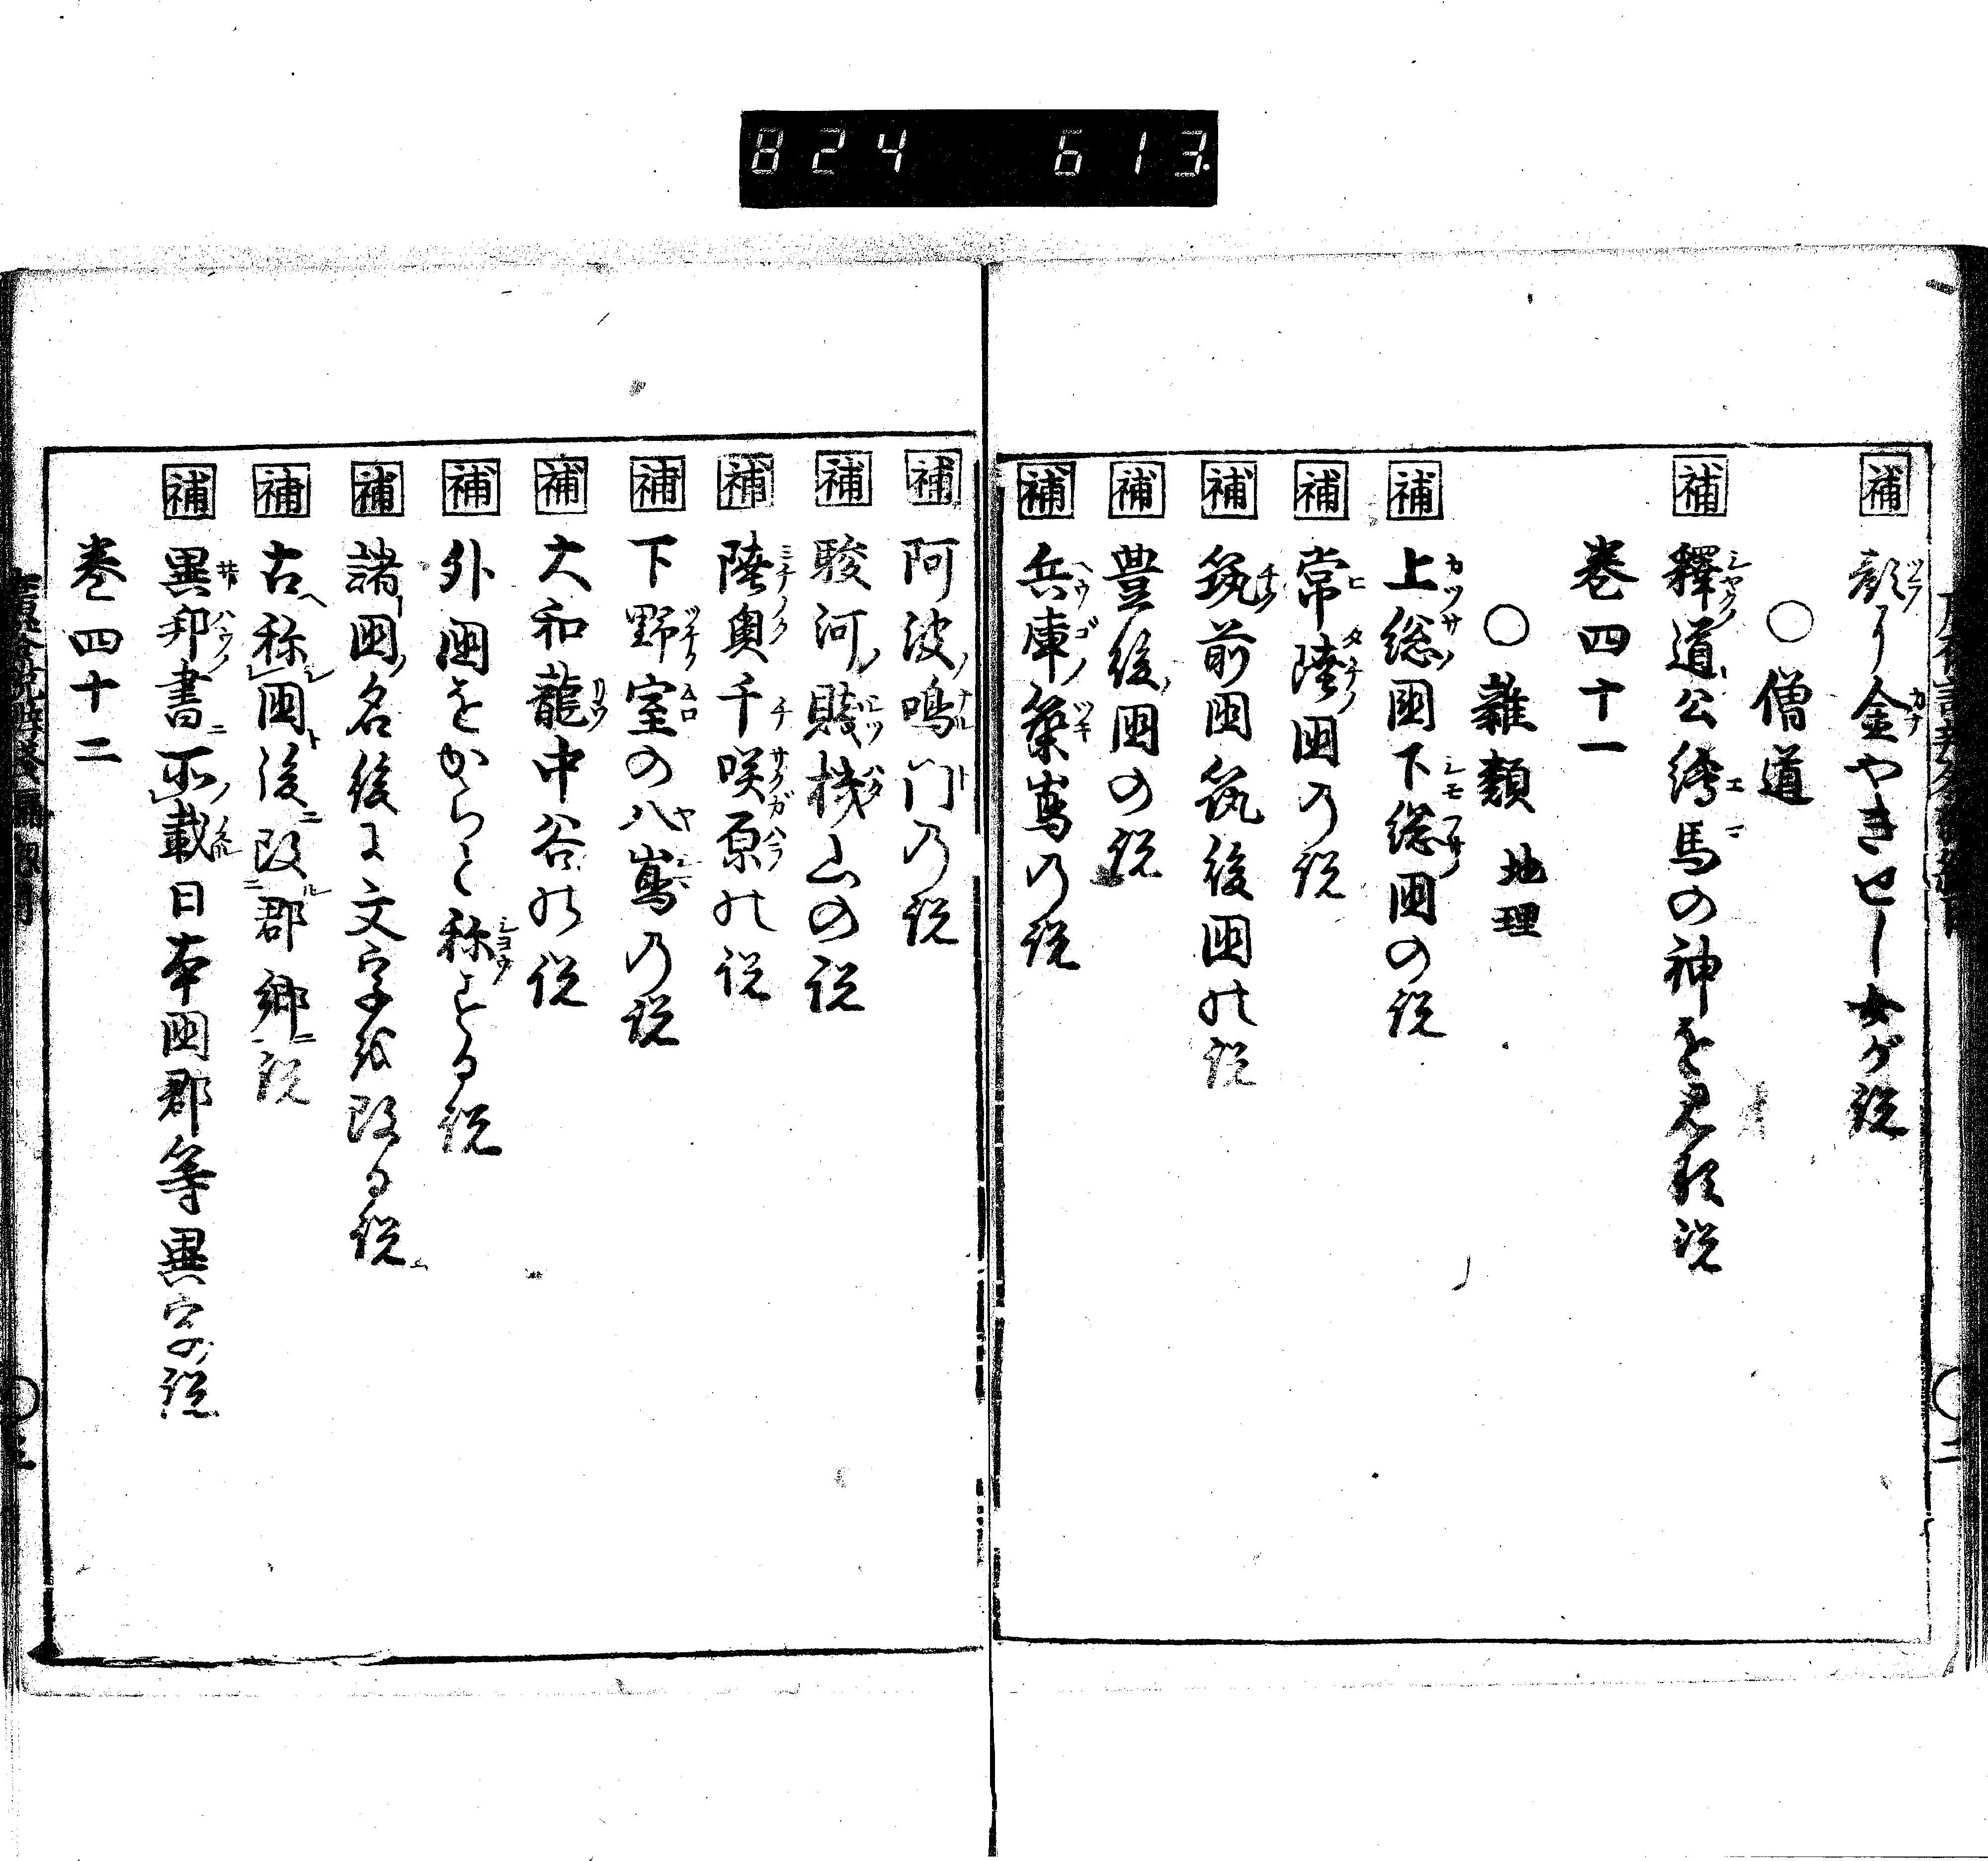 824 613.
補 顔に金やきせし女が説
○僧道
補 釋道公繪馬の神を見る説
巻四十一
○雜類 地理
補 上総国下総国の説
補 常陸国の説
補 筑前国筑後国の説
補 豊後国の説
補 兵庫築島の説
補 阿波鳴門の説
補 駿河賤機山の説
補 陸奥千咲原の説
補 下野室の八嶌の説
補 大和龍中谷の説
補 外国をからと称する説
補 諸国名後に文字を改る説
補 古称国後改郡郷説
補 異邦書所載日本国郡等異字の説
巻四十二